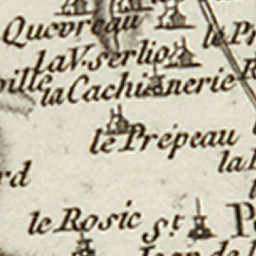 Quevreau
le Pr
la V. serlio
ville
la Cachianerie
R
le Prépeau
la
rd
le Rosic St
P
Jean de l